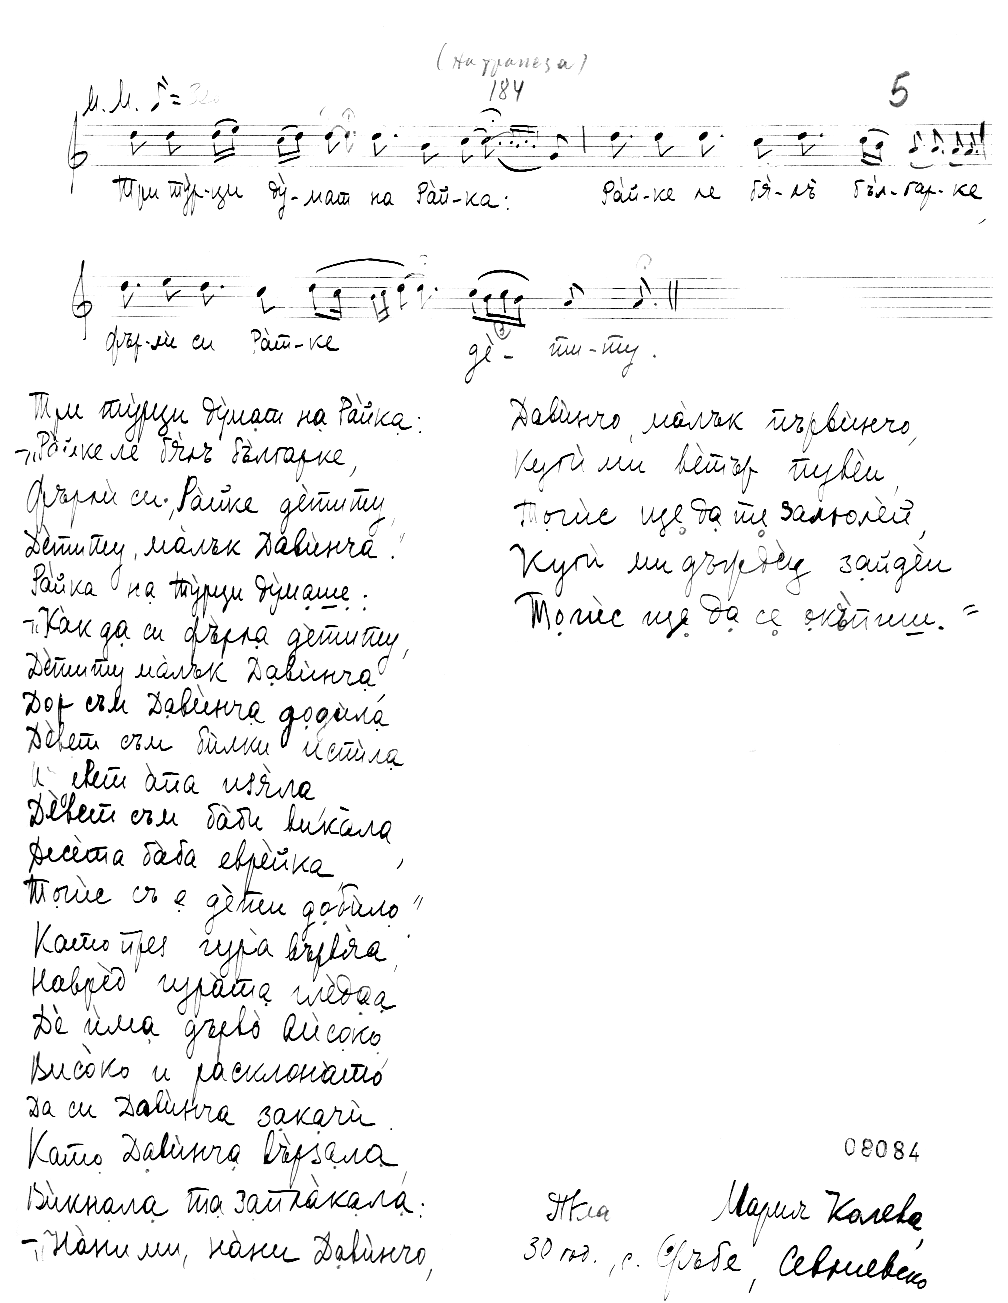 (на трапеза)
184
5
М. М. ♪ =
Три ту̀р-ци ду̀-мат на Ра̀й-ка: Ра̀й-ке ле бя̀-лъ бъ̀л-гар-ке,
фър-лѝ си Ра̀й-ке дѐ-ти-ту.
Три ту̀рци ду̀мат на Ра̀йка:
-„Ра̀йке ле бя̀лъ бъ̀лгарке,
фърлѝ си, Ра̀йке дѐтиту,
Дѐтиту, ма̀лък Давѝнча."
Ра̀йка на ту̀рци ду̀маше:
-„Ка̀к да си фъ̀рла дѐтиту,
Дѐтиту ма̀лък Давѝнча
Дор съм Давѝнча додила̀
Дѐвет съм бѝлки испѝла
И свет а̀па изя̀ла
Дѐвет съм ба̀би вика̀ла
Десѐта ба̀ба еврѐйка,
Тогѝс съ е дѐти добѝло"
Като през гура̀ вървя̀ла,
Наврѐд гура̀та глѐдаа
Дѐ ѝма дърво̀ висо̀ко
Висо̀ко и расклона̀то
Да си Давѝнча закачѝ.
Като Давѝнча въ̀рзала,
Вѝкнала та запла̀кала:
-„На̀ни ми, на̀ни Давѝнчо,
Давѝнчо, ма̀лък първѝнчо,
Кугѝ ми вѐтър пувѐй,
Тогѝс ще да те залюлѐй,
Кугѝ ми дъ̀ждец зайдѐй
Тогѝс ще да се окъ̀пиш."
08084
Пяла Мария Колева,
30 год., с. Сръбе, Севлиевско